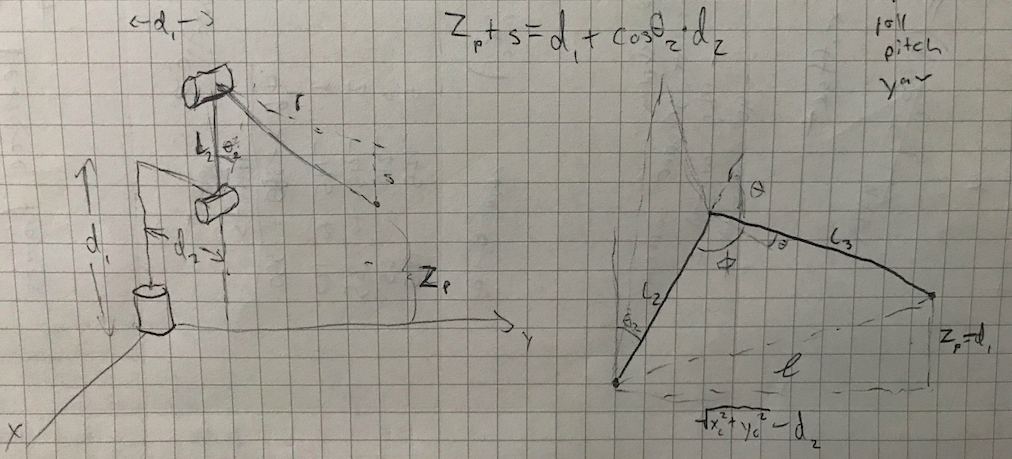 ←d₁→
Z_p + s = d₁ + cosθ₂·d₂
roll
pitch
yaw
r
L₂
θ₂
s
d₁
d₂
Z_p
y
x
θ
θ
L₃
ϕ
L₂
θ₂
Z_p=d₁
l
√x_c²+y_c² - d₂